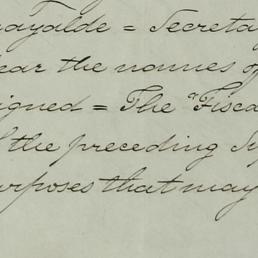 ayalde = Secreta
ear the names of
igned = The "Fisca
the preceding Sy
urposes that may